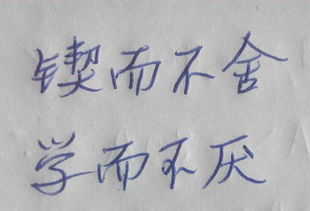 锲而不舍
学而不厌